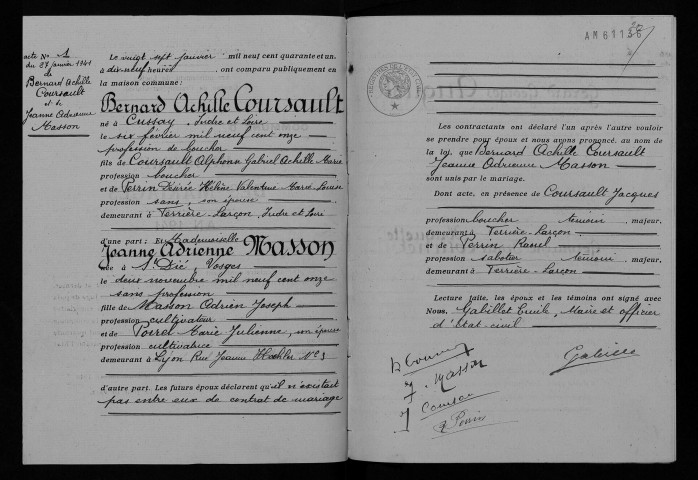 acte No 1
du 27 janvier 1941
de
Bernard Achille
Coursault
et de
Jeanne Adrienne
Masson
Le vingt sept janvier mil neuf cent quarante et un.
à dix neuf heures, ont comparu publiquement en
la maison commune:
Bernard Achille Coursault
né à Cussay, Indre et Loire
le six février mil neuf cent onze
profession de boucher
fils de Coursault Alphonse Gabriel Achille Marie
profession boucher
et de Perrin Désirée Hélène Valentine Marie Louise
profession sans, son épouse
demeurant à Ferrière-Larçon, Indre et Loire
d'une part: Et Mademoiselle
Jeanne Adrienne Masson
née à St Dié, Vosges
le deux novembre mil neuf cent onze
sans profession
fille de Masson Adrien Joseph
profession cultivateur
et de Poirel Marie Julienne, son épouse
profession cultivatrice
demeurant à Lyon Rue Jeanne No 3
d'autre part. Les futurs époux déclarent qu'il n'existait
pas entre eux de contrat de mariage
AM61136
Les contractants ont déclaré l'un après l'autre vouloir
se prendre pour époux et nous avons prononcé, au nom de
la loi, que Bernard Achille Coursault
Jeanne Adrienne Masson
sont unis par le mariage.
Dont acte, en présence de Coursault Jacques
profession boucher témoin, majeur,
demeurant à Ferrière-Larçon
et de Perrin Raoul
profession sabotier témoin, majeur,
demeurant à Ferrière-Larçon
Lecture faite, les époux et les témoins ont signé avec
Nous, Gabillet Emile, Maire et officier
d'état civil
J. Masson